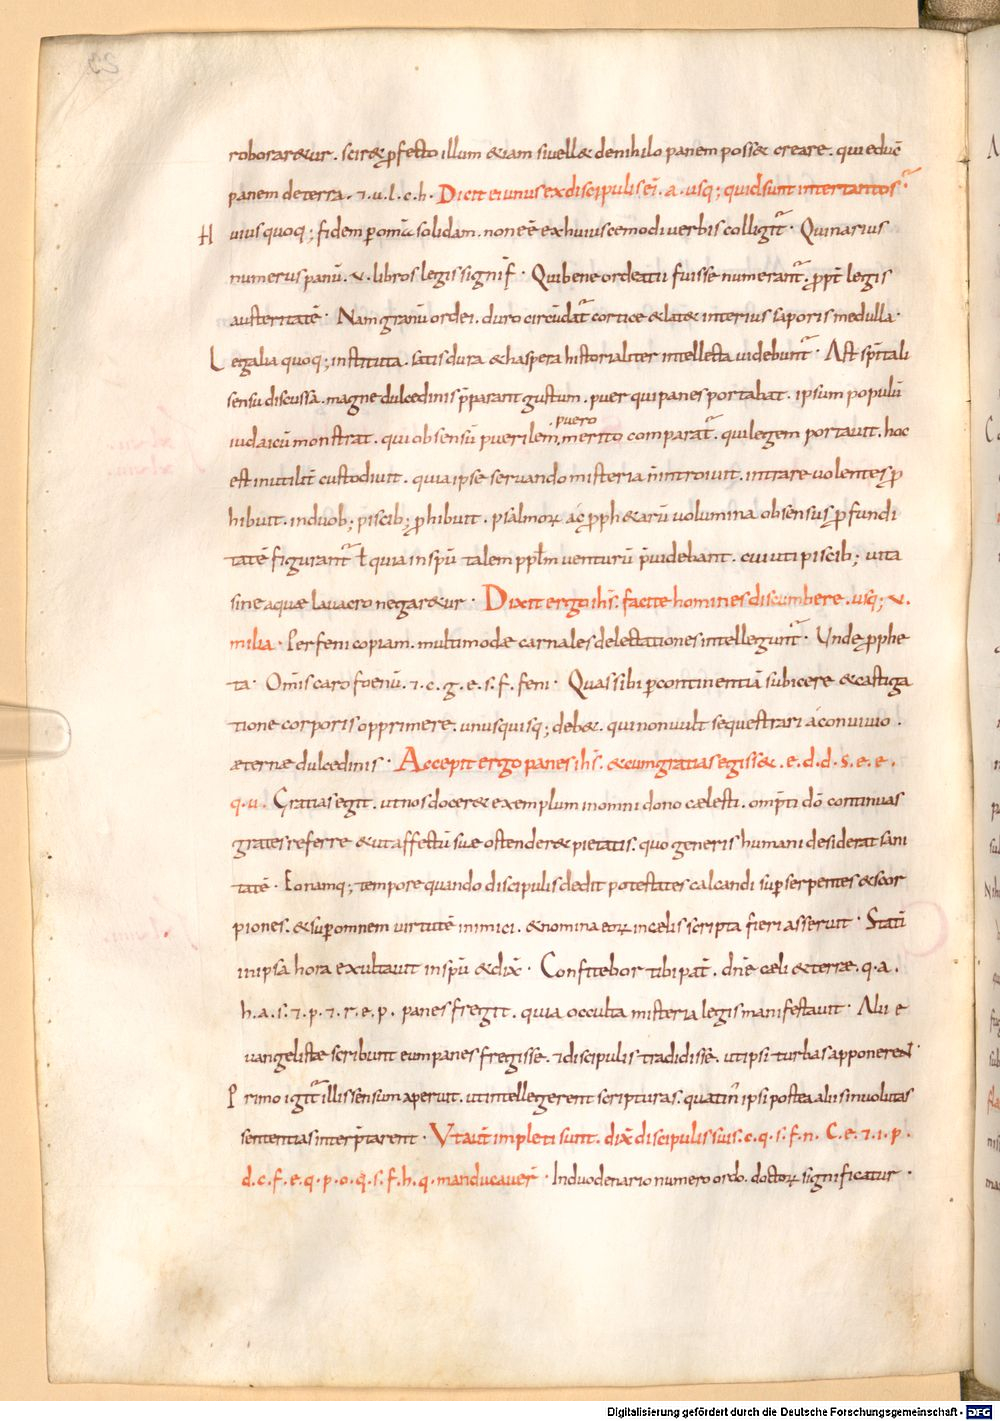 roborar&ur. scir& ꝓfecto illum &iam si uell& denihilo panem poss& creare. qui educ̄
panem deterra. ⁊.u.l.c.h. Dicit ei unus ex discipulis ei᷒. a. usq; quid sunt inter tantos.
Huius quoq; fidem ꝑ omīa solidam. non eē ex huiuscemodi uerbis colligit᷑. Quinarius
numerus panū. v. libros legis signif̄. Qui bene ordeatii fuisse numerant᷑. ꝓpt̄ legis
austeritatē. Nam granū ordei. duro circūdat᷑ cortice & lat& interius saporis medulla.
Legalia quoq; instituta. satis dura & haspera historialiter intellecta uidebunt᷑. Ast sp̄itali
sensu discussa. magne dulcedinis p̄parant gustum. puer qui panes portabat. ipsum populū
iudaicū monstrat. qui ob sensū puerilem, puero merito comparat᷑. qui legem portauit. hoc
est inutilit̄ custodiuit. quia ipse seruando misteria n̄ introiuit. intrare uolentes ꝓ
hibuit. induob; piscib; ꝓhibuit. psalmoꝝ ac ꝓph&arū uolumina ob sensus ꝓfundi
tatē figurant᷑ ł quia in sp̄u talem ppl̄m uenturū p̄uidebant. cui uti piscib; uita
sine aquæ lauacro negar&ur. Dixit ergo ih̄s. facite homines discumbere. usq; v.
milia. Per feni copiam. multimodæ carnales delectationes intellegunt᷑. Unde ꝓphe
ta. Om̄is caro foenū. ⁊.c.g.e.s.f. feni. Quas sibi ꝑ continentiā subicere & castiga
tione corporis opprimere. unusquisq; deb&. qui non uult sequestrari a conuiuio.
æternæ dulcedinis. Accepit ergo panes ih̄s. & cum gratias egiss&. e.d.d.s.e.e.
q.u. Gratias egit. ut nos docer& exemplum in omni dono cælesti. omp̄ti dō continuas
grates referre & ut affectū suæ ostender& pietatis. quo generis humani desiderat sani
tatē. Eo namq; tempore quando discipulis dedit potestates calcandi suꝑ serpentes & scor
piones. & suꝑ omnem uirtutē inimici. & nomina eoꝝ in celis scripta fieri asseruit. Statī
in ipsa hora exultauit in sp̄u & dix̄. Confitebor tibi pat̄. dn̄e cæli & terræ. q.a.
h.a.s.⁊.p.⁊.r.e.p. panes fregit. quia occulta misteria legis manifestauit. Alii e
uangelistæ scribunt eum panes fregisse. ⁊ discipulis tradidisse. ut ipsi turbas apponerent.
Primo igit᷑ illis sensum aperuit. ut intellegerent scripturas. quatin᷒ ipsi postea aliis inuolutas
sententias interp̄tarent. Vt aut̄ impleti sunt. dix̄ discipulis suis. c.q.s.f.n. C.e.⁊.i.p.
d.c.f.e.q.p.o.q.s.f.h.q. manducauer̄. In duodenario numero ordo. doctoꝝ significatur.
Digitalisierung gefördert durch die Deutsche Forschungsgemeinschaft - DFG